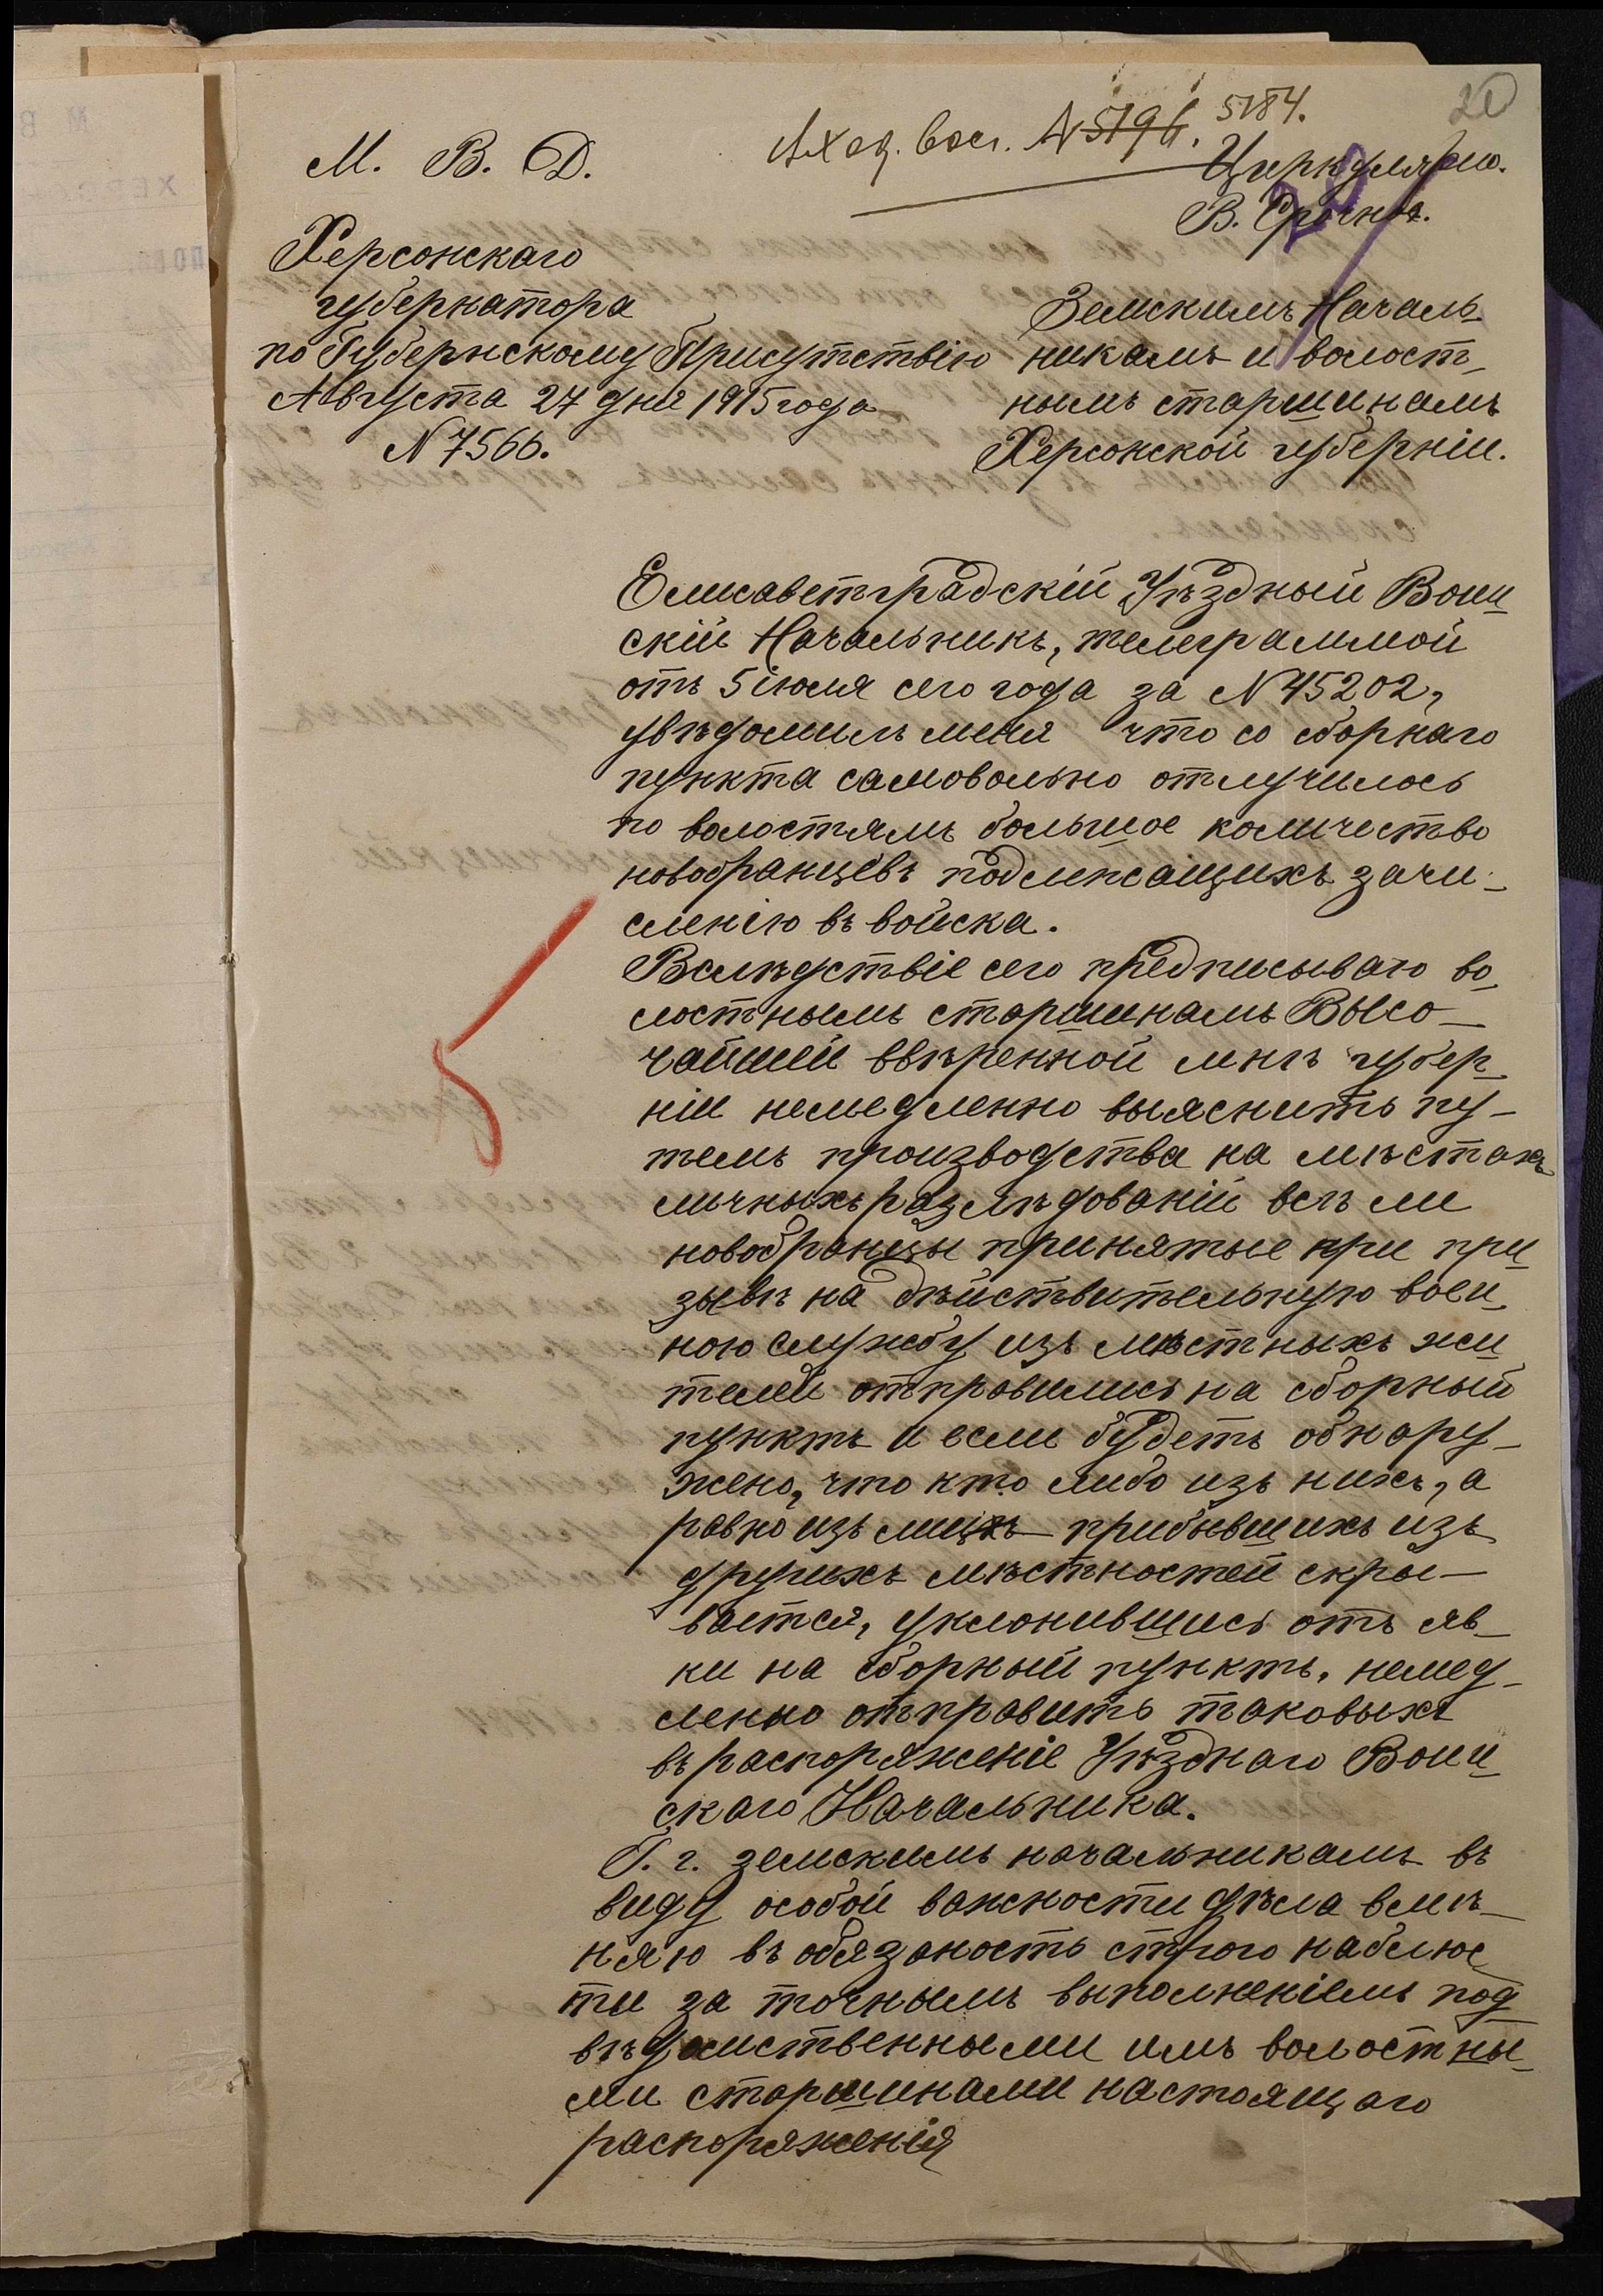 20
5184.
Вход. вол. №5196.
М. В. Д.
Циркулярно.
В. Срочно.
Херсонскаго
губернатора
по Губернскому Присутствію
Августа 27 дня 1915 года
№ 7566.
Земскимъ Началь-
никамъ и волост-
нымъ старшинамъ
Херсонской губерніи.
Елисаветградскій Уѣздный Воин-
скій Начальникъ, телеграммой
отъ 5 іюля сего года за №45202,
увѣдомилъ меня что со сборнаго
пункта самовольно отлучилось
по волостямъ большое количество
новобранцевъ подлежащихъ зачи-
сленію въ войска.
Вслѣдствіе сего предписываю во-
лостнымъ старшинамъ Высо-
чайшей ввѣренной мнѣ губер-
ніи немедленно выяснить пу-
темъ производства на мѣстахъ
личныхъ разслѣдованій всѣ ли
новобранцы принятые при при-
зывѣ на дѣйствительную воен-
ною службу изъ мѣстныхъ жи-
телей отправились на сборный
пунктъ и если будетъ обнару-
жено, что кто либо изъ нихъ, а
равно изъ лицъ прибывшихъ изъ
другихъ мѣстностей скры-
вается, уклонившись отъ яв-
ки на сборный пунктъ, немед-
ленно отправить таковыхъ
въ распоряженіе Уѣзднаго Воин-
скаго Начальника.
Г. г. земскимъ начальникамъ въ
виду особой важности дѣла вмѣ-
няю въ обязаность строго наблюс-
ти за точнымъ выполненіемъ под-
вѣдомственными имъ волостны-
ми старшинами настоящаго
распоряженія